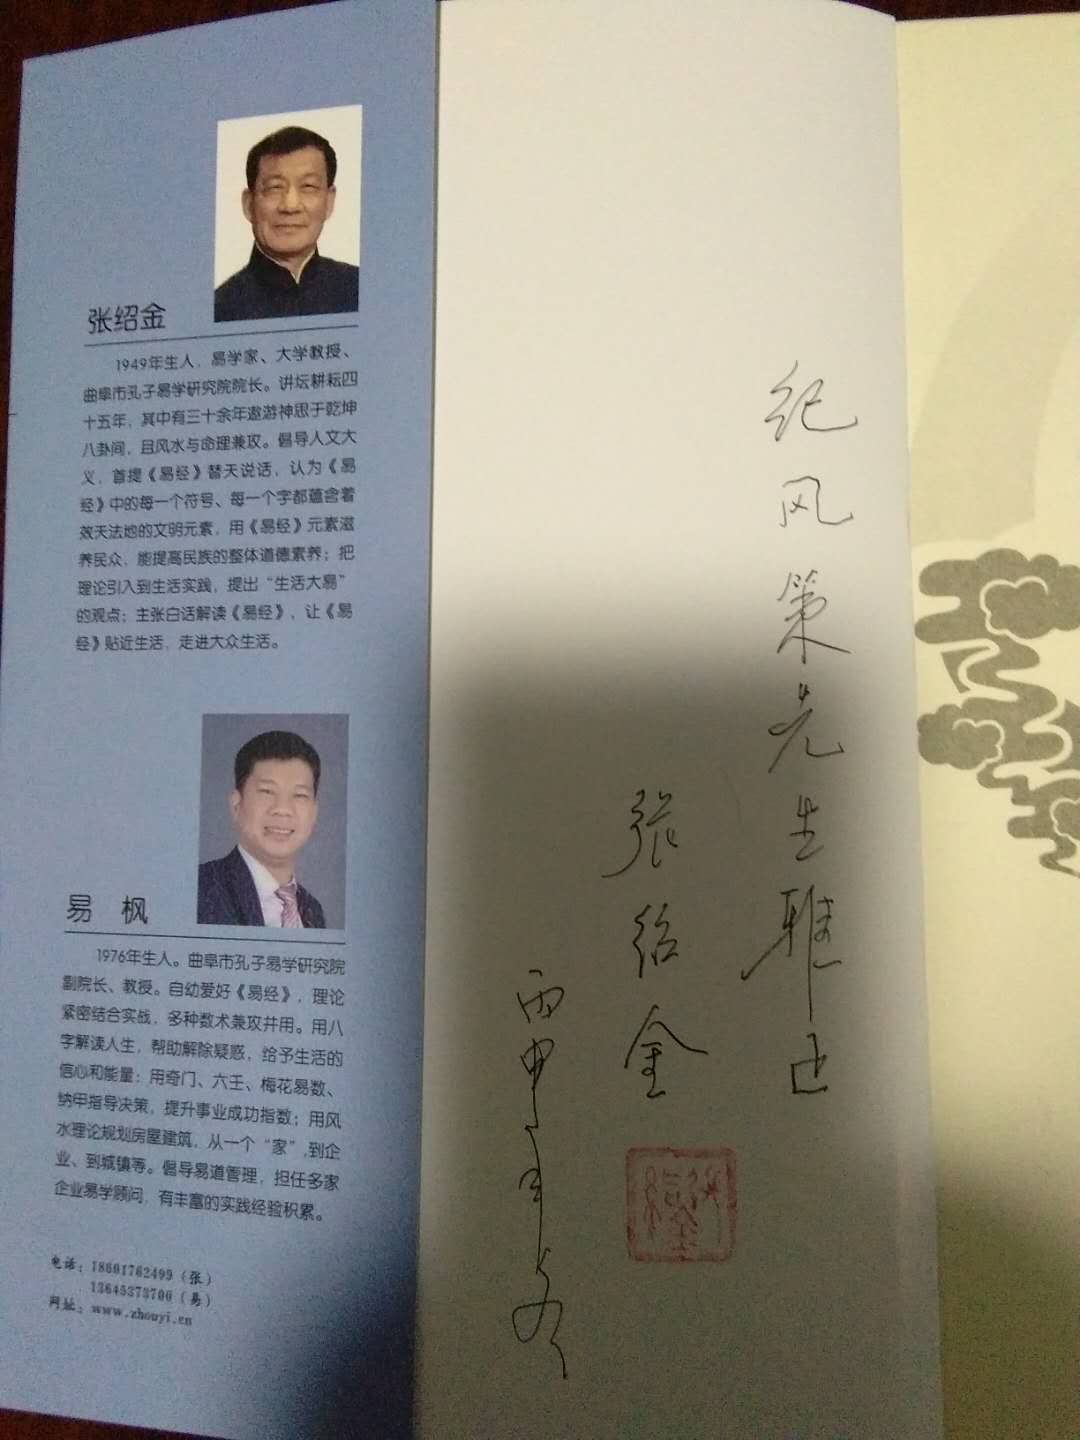 张绍金
1949年生人，易学家、大学教授、
曲阜市孔子易学研究院院长。讲坛耕耘四
十五年，其中有三十余年遨游神思于乾坤
八卦间，且风水与命理兼攻。倡导人文大
义，首提《易经》替天说话，认为《易
经》中的每一个符号、每一个字都蕴含着
效天法地的文明元素，用《易经》元素滋
养民众，能提高民族的整体道德素养；把
理论引入到生活实践，提出“生活大易”
的观点；主张白话解读《易经》，让《易
经》贴近生活，走进大众生活。
易 枫
1976年生人。曲阜市孔子易学研究院
副院长、教授。自幼爱好《易经》，理论
紧密结合实战，多种数术兼攻并用。用八
字解读人生，帮助解除疑惑，给予生活的
信心和能量；用奇门、六壬、梅花易数、
纳甲指导决策，提升事业成功指数；用风
水理论规划房屋建筑，从一个“家”,到企
业、到城镇等。倡导易道管理，担任多家
企业易学顾问，有丰富的实践经验积累。
电话：18601762499（张）
13645373700（易）
网址：www.zhouyi.cn
纪风策先生雅正
张绍金
丙申年冬